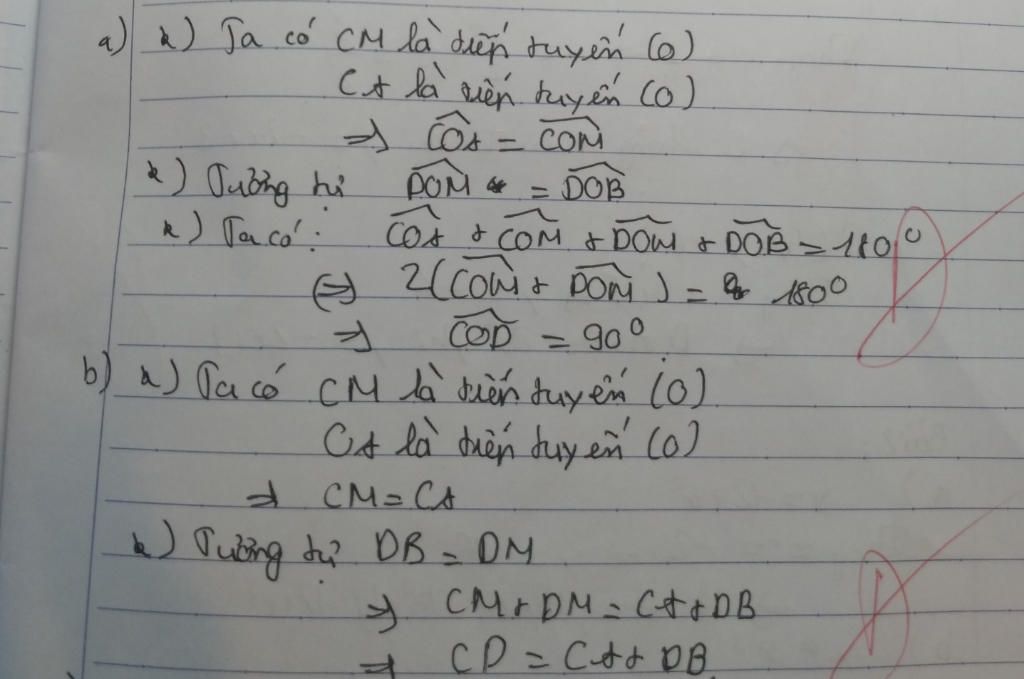 a) *) Ta có CM là tiếp tuyến (O)
CA là tiếp tuyến (O)
=> COA = COM
*) Tương tự DOM = DOB
*) Ta có: COA + COM + DOM + DOB = 180°
<=> 2(COM + DOM) = 180°
=> COD = 90°
b) *) Ta có CM là tiếp tuyến (O)
CA là tiếp tuyến (O)
=> CM = CA
*) Tương tự DB = DM
=> CM + DM = CA + DB
=> CD = CA + DB